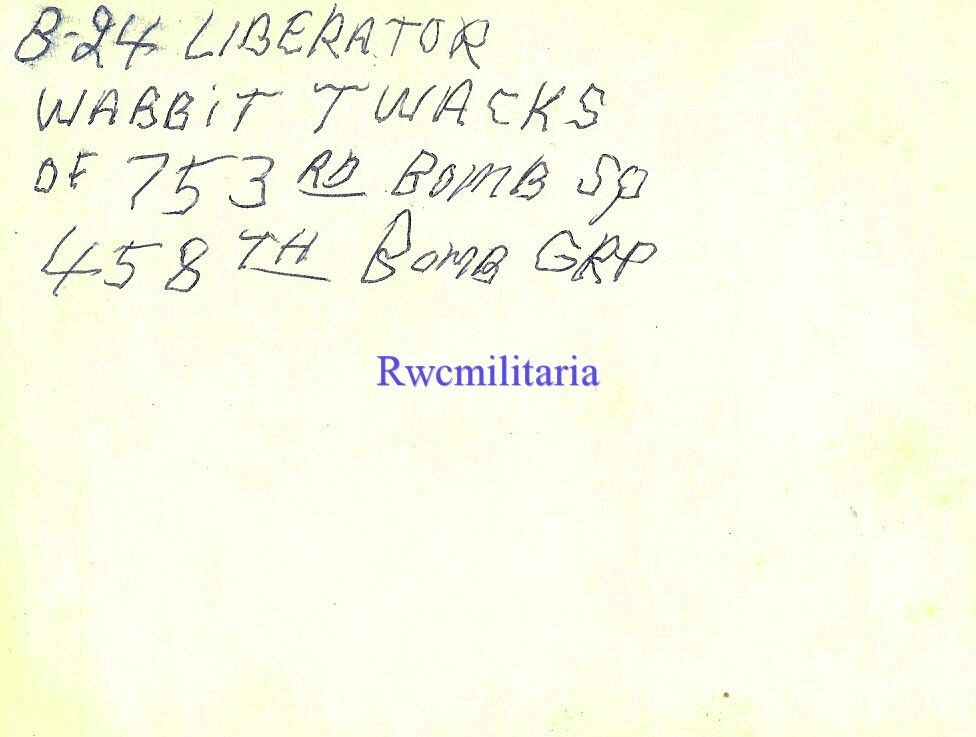 B-24 LIBERATOR
WABBIT TWACKS
OF 753RD BOMB SQ
458TH BOMB GRP
Rwcmilitaria